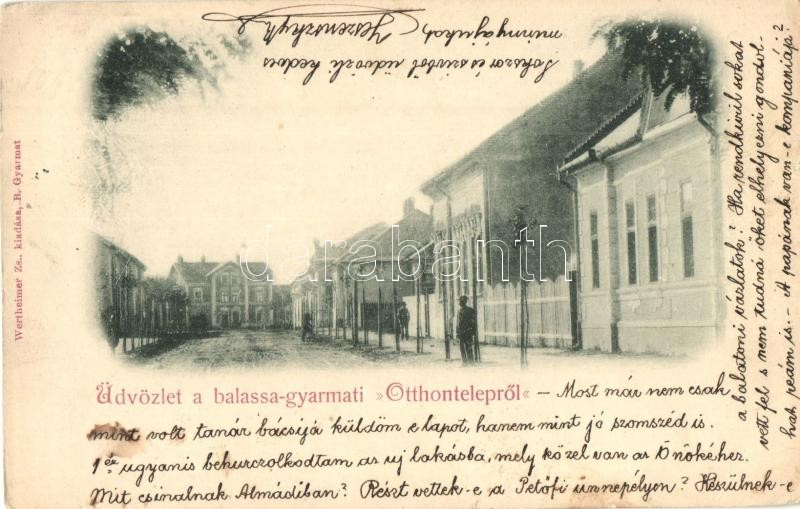 Üdvözlet a balassa-gyarmati »Otthontelepről« – Most már nem csak
mint volt tanár bácsija küldöm e lapot, hanem mint jó szomszéd is.
1én ugyanis behurczolkodtam az uj lakásba, mely közel van az Önökéhez.
Mit csinálnak Almádiban? Részt vettek-e a Petőfi ünnepélyen? Készülnek-e
a balatoni vázlatok? Ha rendkivül sokat
vett fel s nem tudná őket elhelyezni gondol-
hat reám is. – A papának van-e kompániája?
Sokszor és szivből üdvözli kedves
minnyájukat
Wertheimer Zs., kiadása, B. Gyarmat
darabanth.com